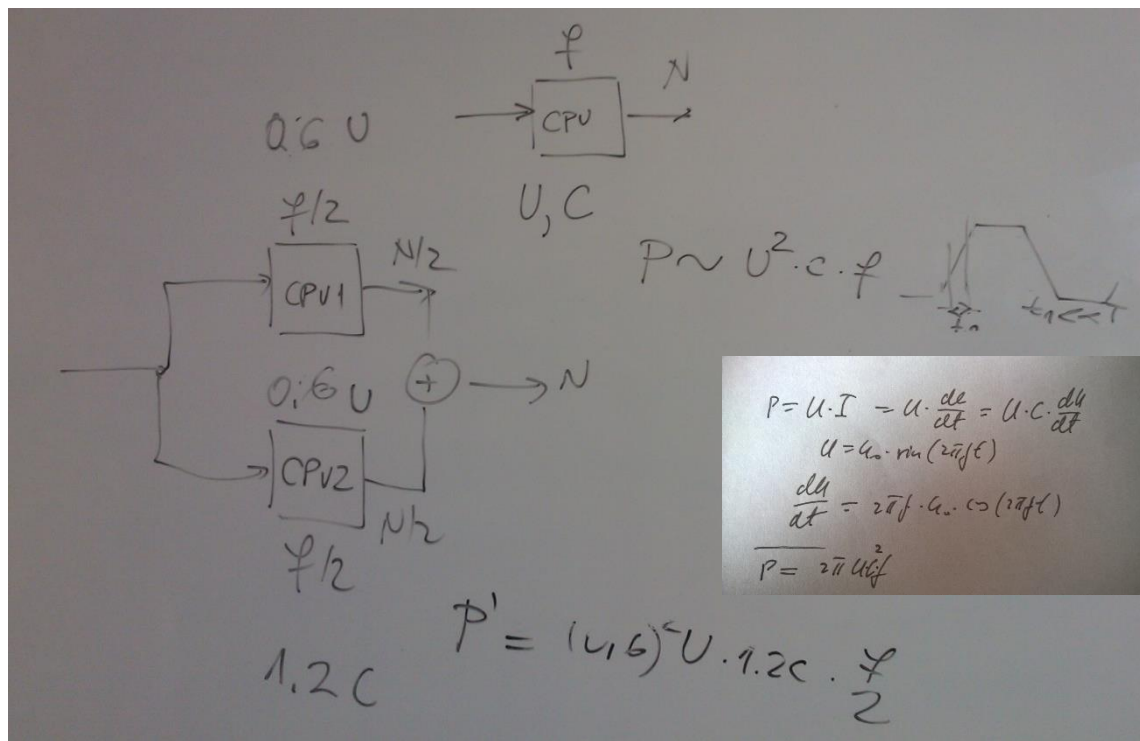 f
N
CPU
0.6 U
U, C
f/2
N/2
CPU1
P ~ U². c. f
0.6 U
+
N
CPU2
N/2
f/2
P = U·I = U· de/dt = U·C· du/dt
U = u₀· sin(2πft)
du/dt = 2πf·u₀·cos(2πft)
P = 2π u²cf
1.2 C
P' = (0,6)² U·1.2C · f/2